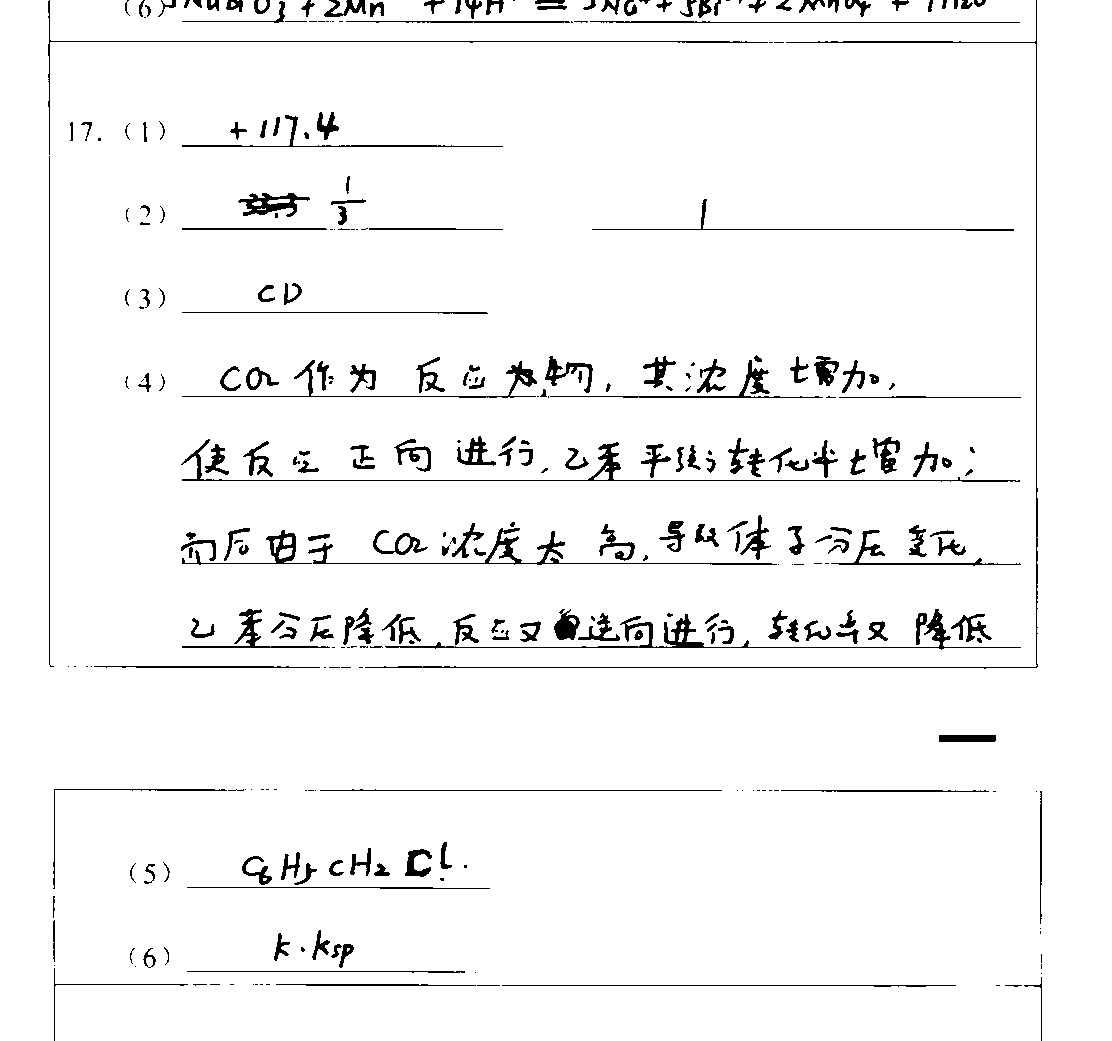 (6) 5NaBiO3 + 2Mn²⁺ + 14H⁺ = 5Na⁺ + 5Bi³⁺ + 2MnO4⁻ + 7H2O
17. (1) +117.4
(2) 1/3 1
(3) CD
(4) CO2作为反应物, 其浓度增加,
使反应正向进行, 乙苯平衡转化率增加;
而后由于CO2浓度太高, 导致体系分压变化,
乙苯分压降低, 反应又逆向进行, 转化率又降低
(5) C6H5CH2Cl.
(6) K·Ksp